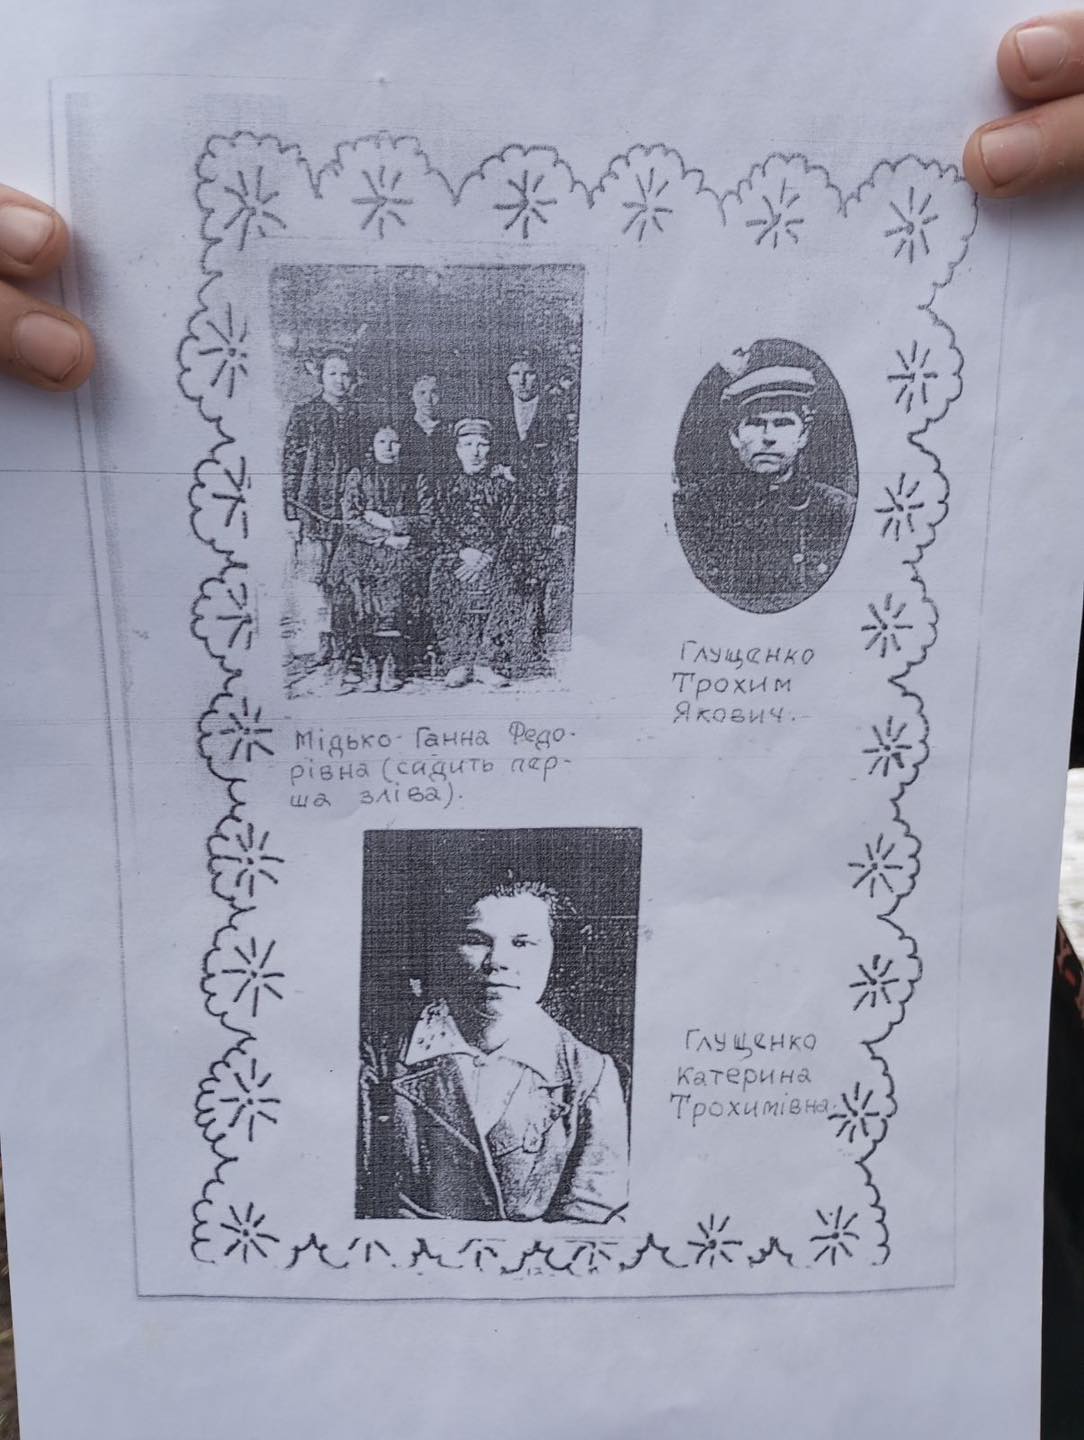 Глущенко
Трохим
Якович.
Мідько Ганна Федо-
рівна (сидить пер-
ша зліва).
Глущенко
Катерина
Трохимівна